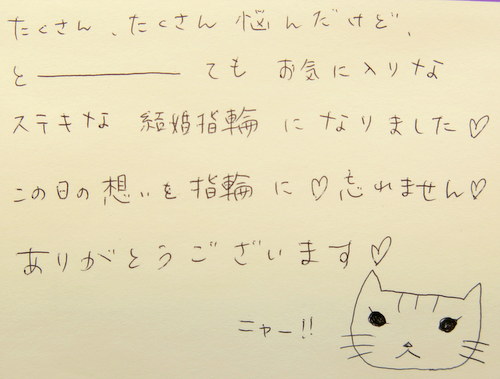 たくさん、たくさん悩んだけど、
と────ても お気に入りな
ステキな 結婚指輪 に なりました♡
この日の想いを指輪に♡忘れません♡
ありがとうございます♡
ニャー!!